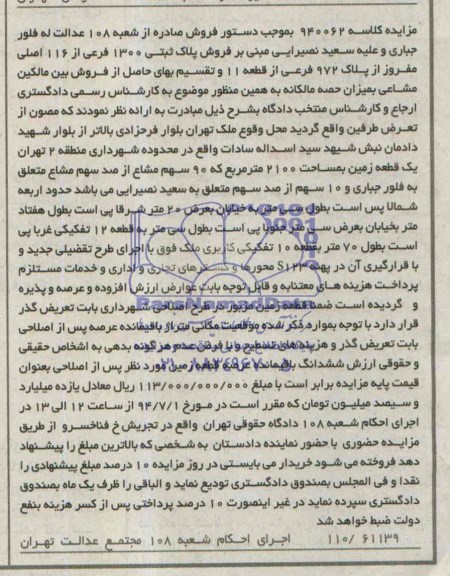 مزایده کلاسه ۹۴۰۰۶۲ بموجب دستور فروش صادره از شعبه ۱۰۸ عدالت له فلور
جباری و علیه سعید نصیرایی مبنی بر فروش پلاک ثبتی ۱۳۰۰ فرعی از ۱۱۶ اصلی
مفروز از پلاک ۹۷۲ فرعی از قطعه ۱۱ و تقسیم بهای حاصل از فروش بین مالکین
مشاعی بمیزان حصه مالکانه به همین منظور موضوع به کارشناس رسمی دادگستری
ارجاع و کارشناس منتخب دادگاه بشرح ذیل مبادرت به ارائه نظر نمودند که مصون از
تعرض طرفین واقع گردید محل وقوع ملک تهران بلوار فرحزادی بالاتر از بلوار شهید
دادمان نبش شهید سید اسداله سادات واقع در محدوده شهرداری منطقه ۲ تهران
یک قطعه زمین بمساحت ۲۱۰۰ مترمربع که ۹۰ سهم مشاع از صد سهم مشاع متعلق
به فلور جباری و ۱۰ سهم از صد سهم متعلق به سعید نصیرایی می باشد حدود اربعه
شمالا پس است بطول سی متر به خیابان بعرض ۲۰ متر شرقا پی است بطول هفتاد
متر بخیابان بعرض سی متر جنوبا پی است بطول سی متر به قطعه ۱۲ تفکیکی غربا پی
است بطول ۷۰ متر بقطعه ۱۰ تفکیکی کاربری ملک فوق با اجرای طرح تفضیلی جدید و
با قرارگیری آن در پهنه S۱۲۳ محورها و گسترهای تجاری و اداری و خدمات مستلزم
پرداخت هزینه های معتنابه و قابل توجه بابت عوارض ارزش افزوده و عرصه و پذیره
و گردیده است ضمنا قطعه زمین مزبور در طرح اصلاحی شهرداری بابت تعریض گذر
قرار دارد با توجه بموارد ذکر شده و موقعیت مکانی متراژ باقیمانده عرصه پس از اصلاحی
بابت تعریض گذر و هزینه های تسطیح و با فرض عدم هر گونه بدهی به اشخاص حقیقی
و حقوقی ارزش ششدانگ باقیمانده عرصه قطعه زمین مورد نظر پس از اصلاحی بعنوان
قیمت پایه مزایده برابر است با مبلغ ۱۱۳/۰۰۰/۰۰۰/۰۰۰ ریال معادل یازده میلیارد
و سیصد میلیون تومان که مقرر است در مورخ ۹۴/۷/۱ از ساعت ۱۲ الی ۱۳ در
اجرای احکام شعبه ۱۰۸ دادگاه حقوقی تهران واقع در تجریش خ فناخسرو از طریق
مزایده حضوری با حضور نماینده دادستان به شخصی که بالاترین مبلغ را پیشنهاد
دهد فروخته می شود خریدار می بایستی در روز مزایده ۱۰ درصد مبلغ پیشنهادی را
نقدا و فی المجلس بصندوق دادگستری تودیع نماید و الباقی را ظرف یک ماه بصندوق
دادگستری سپرده نماید در غیر اینصورت ۱۰ درصد پرداختی پس از کسر هزینه بنفع
دولت ضبط خواهد شد
۱۱۰/ ۶۱۱۳۹ اجرای احکام شعبه ۱۰۸ مجتمع عدالت تهران